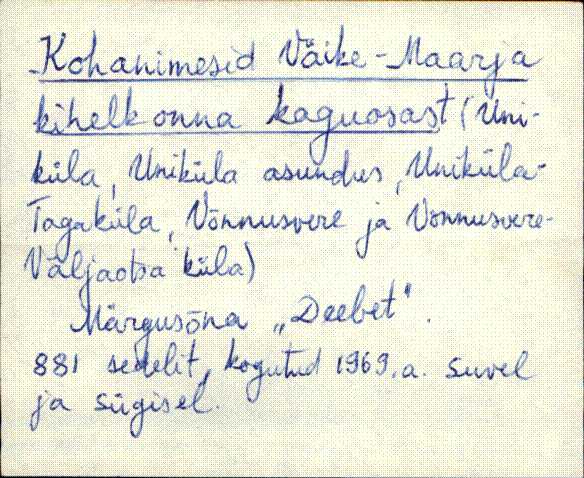 Kohanimesid Väike-Maarja
kihelkonna kaguosast (Uni-
küla, Uniküla asundus, Uniküla-
Tagaküla, Võnnusvere ja Võnnusvere-
Väljaotsa küla)
Märgusõna „Deebet".
881 sedelit, kogutud 1969.a. suvel
ja sügisel.